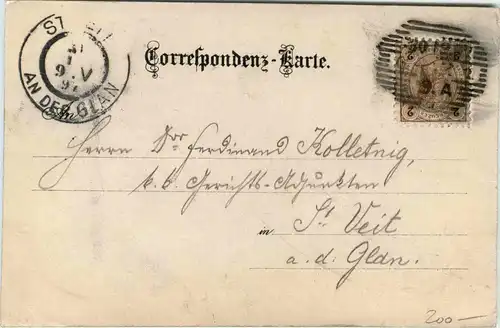 ST. VEIT
9 V
97
AN DER GLAN
Correspondenz-Karte.
2 2
An
Herrn Dor Ferdinand Kolletnig,
k. k. Gerichts-Adjunkten
in St Veit
a. d. Glan.
200-